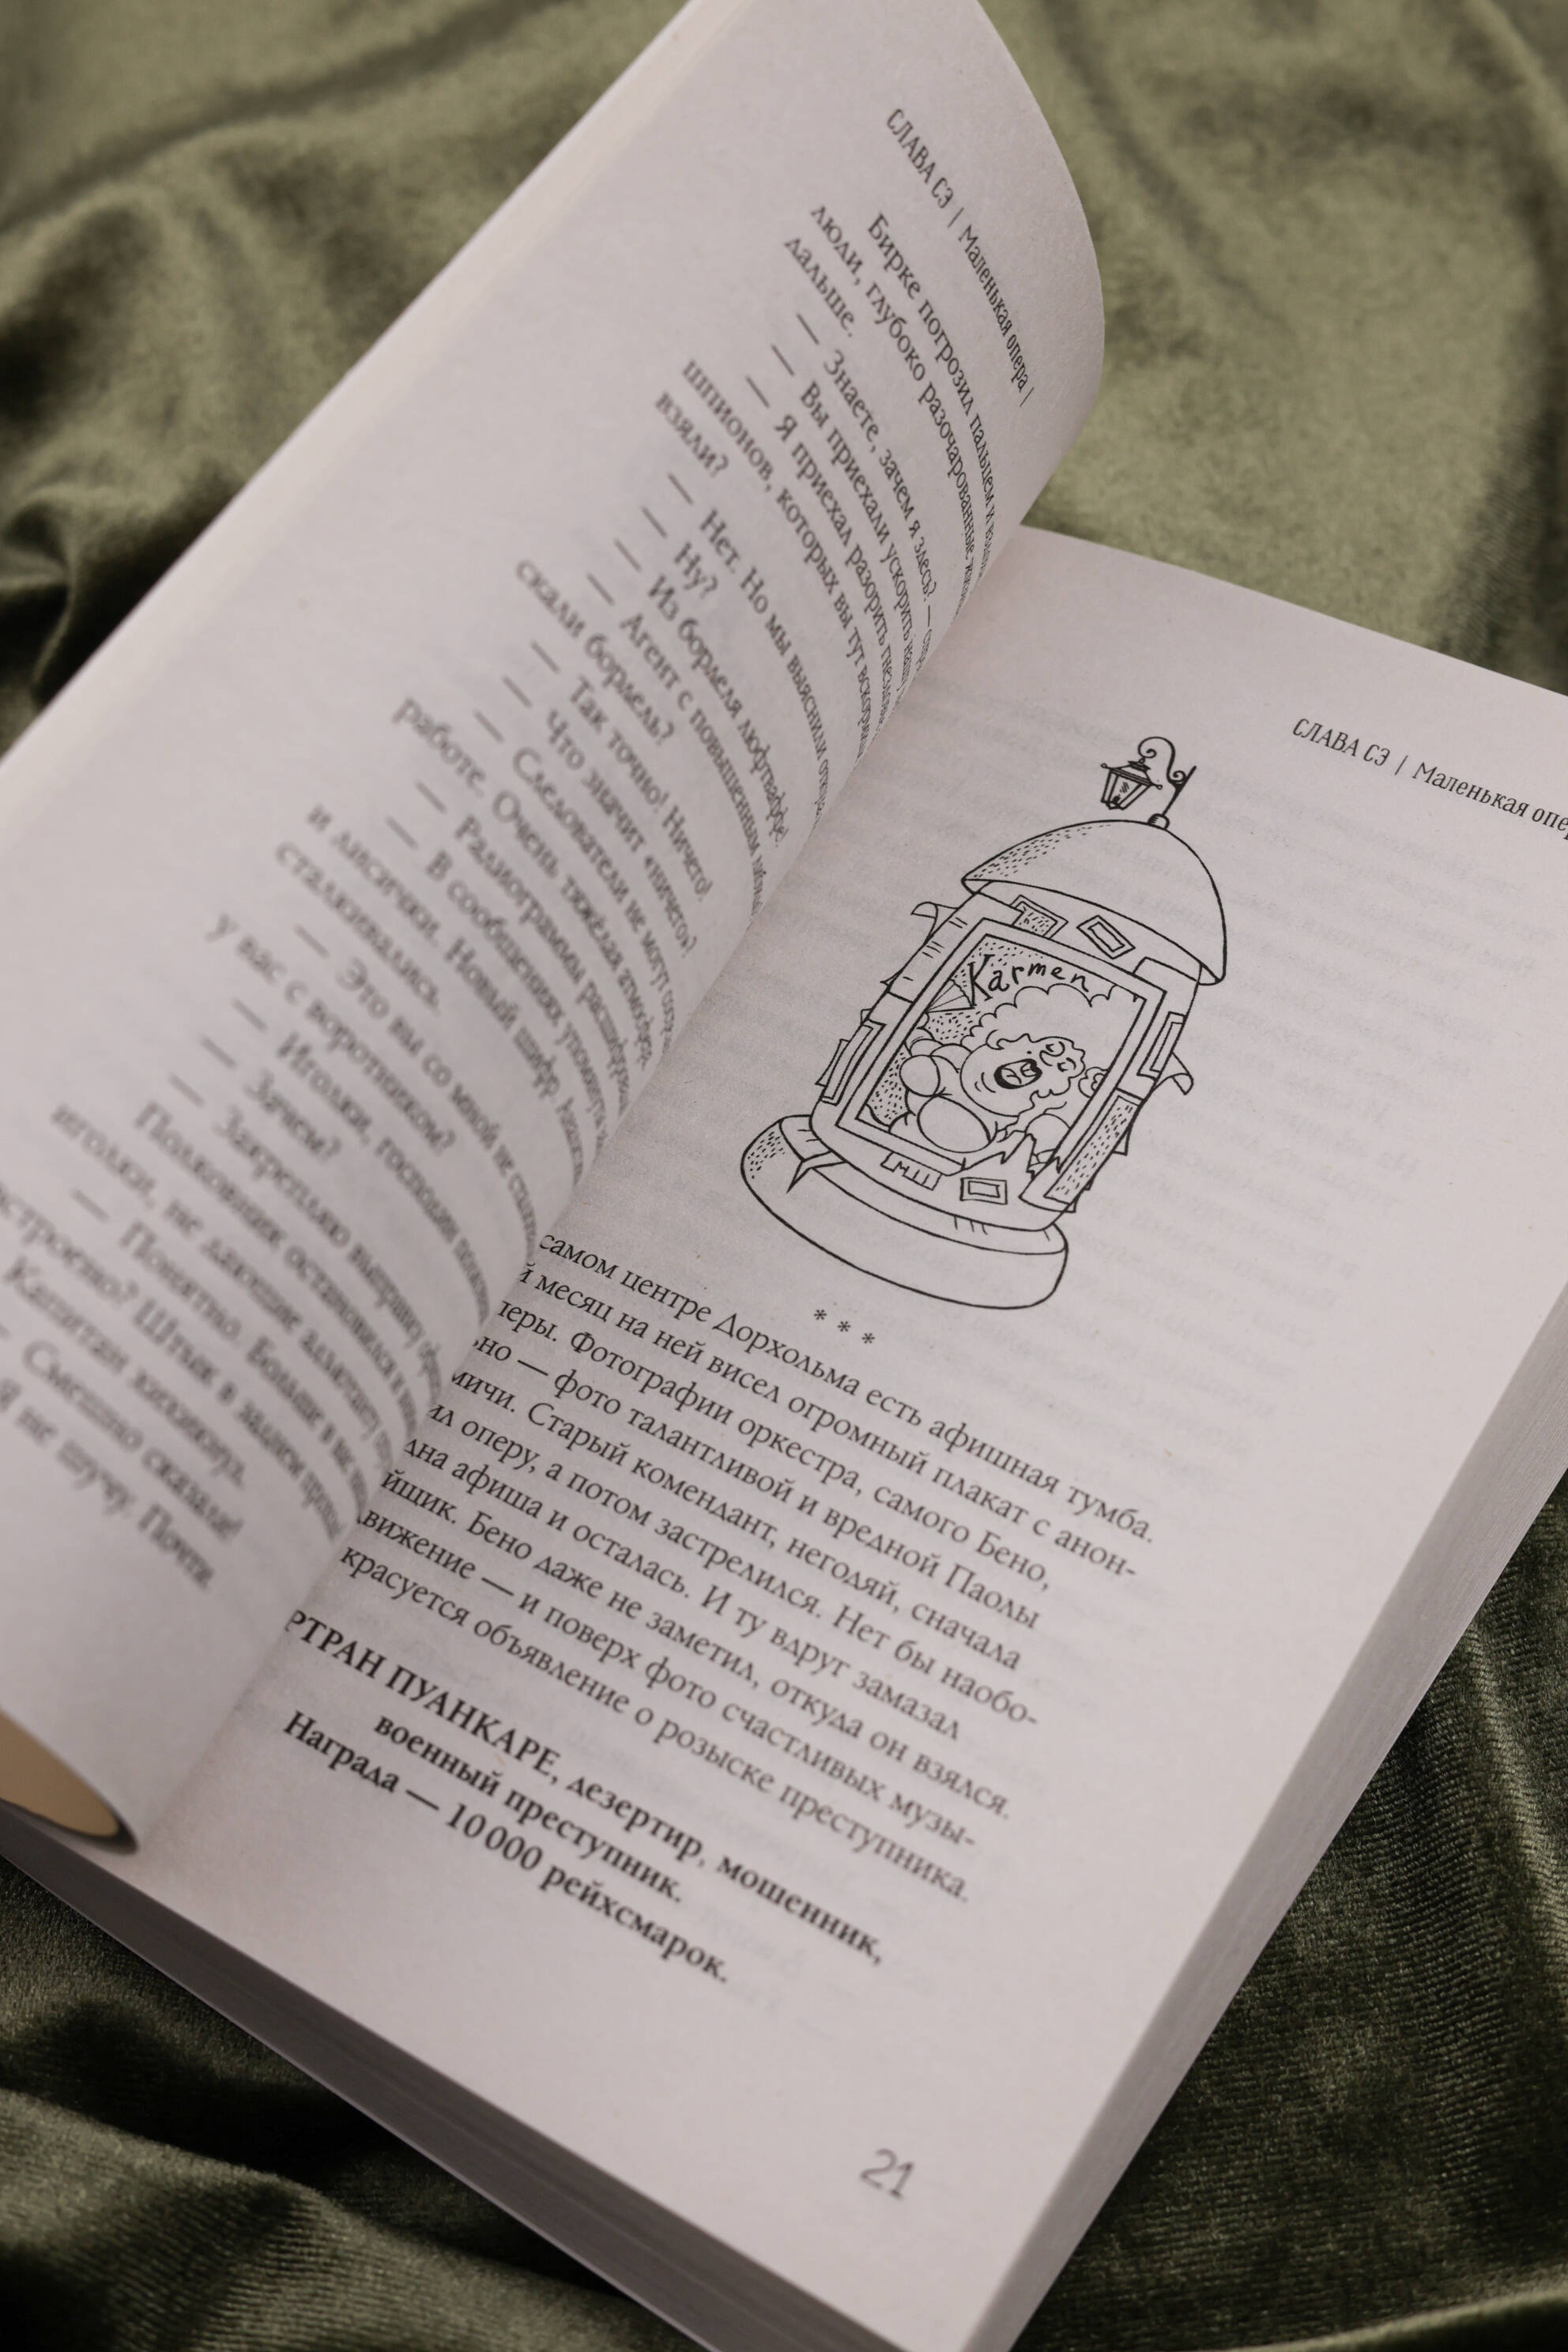 СЛАВА СЭ | Маленькая опера |
Бирке погрозил пальцем и
люди, глубоко разочарованные
дальше.
— Знаете, зачем я здесь? —
— Вы приехали ускорить
— Я приехал разорить
шпионов, которых вы тут
взяли?
— Нет. Но мы выяснили
— Ну?
— Из борделя люфтваффе!
— Агент с повышенным
скали бордель?
— Так точно! Ничего!
— Что значит «ничего»?
— Следователи не могут
работе. Очень тяжёлая атмосфера.
— Радиограммы
— В сообщениях
и лисички. Новый шифр.
сталкивались.
— Это вы со мной не
у вас с воротником?
— Иголки, господин
— Зачем?
— Закрепляю выправку
Полковник остановился и
иголки, не дающие
— Понятно. Больше в
Штык в заднем
Капитан хихикнул.
— Смешно сказали!
я не шучу. Почти
СЛАВА СЭ | Маленькая опер
Karmen
* * *
самом центре Дорхольма есть афишная тумба.
й месяц на ней висел огромный плакат с анон-
перы. Фотографии оркестра, самого Бено,
ьно — фото талантливой и вредной Паолы
мичи. Старый комендант, негодяй, сначала
ил оперу, а потом застрелился. Нет бы наобо-
дна афиша и осталась. И ту вдруг замазал
йщик. Бено даже не заметил, откуда он взялся.
движение — и поверх фото счастливых музы-
красуется объявление о розыске преступника.
РТРАН ПУАНКАРЕ, дезертир, мошенник,
военный преступник.
Награда — 10 000 рейхсмарок.
21